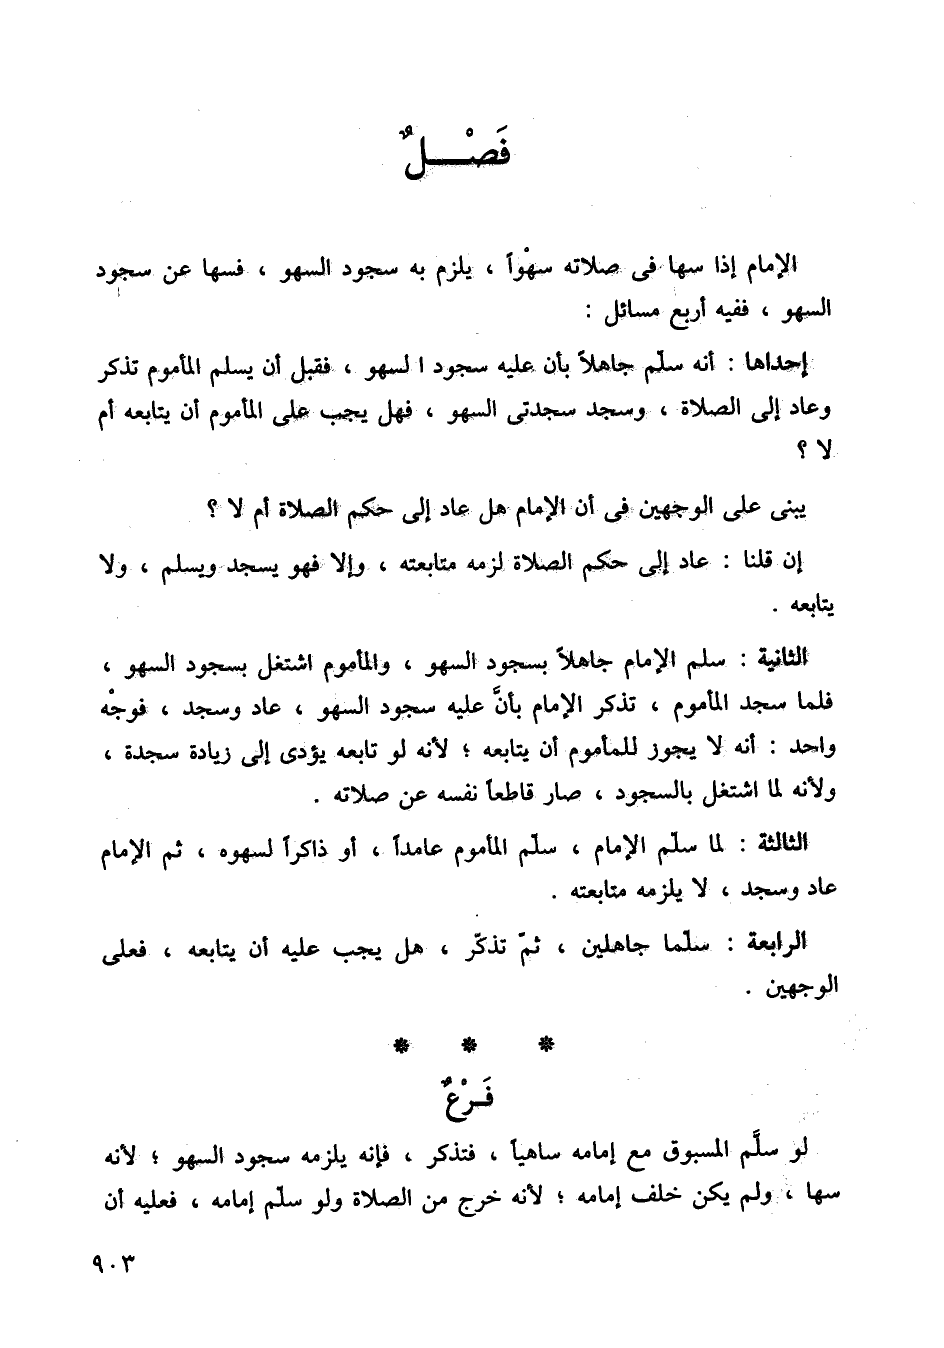 فَصْـــلٌ
الإمام إذا سها فى صلاته سهْواً ، يلزم به سجود السهو ، فسها عن سجود
السهو ، ففيه أربع مسائل :
إحداها : أنه سلّم جاهلاً بأن عليه سجود ا لسهو ، فقبل أن يسلم المأموم تذكر
وعاد إلى الصلاة ، وسجد سجدتى السهو ، فهل يجب على المأموم أن يتابعه أم
لا ؟
يبنى على الوجهين فى أن الإمام هل عاد إلى حكم الصلاة أم لا ؟
إن قلنا : عاد إلى حكم الصلاة لزمه متابعته ، وإلا فهو يسجد ويسلم ، ولا
يتابعه .
الثانية : سلم الإمام جاهلاً بسجود السهو ، والمأموم اشتغل بسجود السهو ،
فلما سجد المأموم ، تذكر الإمام بأنَّ عليه سجود السهو ، عاد وسجد ، فوجْه
واحد : أنه لا يجوز للمأموم أن يتابعه ؛ لأنه لو تابعه يؤدى إلى زيادة سجدة ،
ولأنه لما اشتغل بالسجود ، صار قاطعاً نفسه عن صلاته .
الثالثة : لما سلّم الإمام ، سلّم المأموم عامداً ، أو ذاكراً لسهوه ، ثم الإمام
عاد وسجد ، لا يلزمه متابعته .
الرابعة : سلّما جاهلين ، ثمّ تذكّر ، هل يجب عليه أن يتابعه ، فعلى
الوجهين .
* * *
فَـرْعٌ
لو سلَّم المسبوق مع إمامه ساهياً ، فتذكر ، فإنه يلزمه سجود السهو ؛ لأنه
سها ، ولم يكن خلف إمامه ؛ لأنه خرج من الصلاة ولو سلّم إمامه ، فعليه أن
٩٠٣